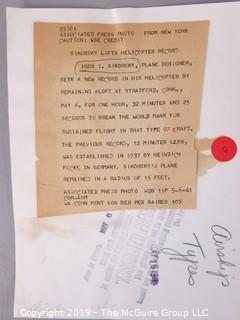 25301
ASSOCIATED PRESS PHOTO FROM NEW YORK
CAUTION: USE CREDIT
SIKORSKY LIFTS HELICOPTER RECORD
IGOR I. SIKORSKY, PLANE DESIGNER,
SETS A NEW RECORD IN HIS HELICOPTER BY
REMAINING ALOFT AT STRATFORD, CONN.,
MAY 6, FOR ONE HOUR, 32 MINUTES AND 25
SECONDS TO BREAK THE WORLD MARK FOR
SUSTAINED FLIGHT IN THAT TYPE OF CRAFT.
THE PREVIOUS RECORD, 12 MINUTES LESS,
WAS ESTABLISHED IN 1937 BY HEINRICH
FOCKE IN GERMANY. SIKORSKY'S PLANE
REMAINED IN A RADIUS OF 15 FEET.
ASSOCIATED PRESS PHOTO WSB 11P 5-6-41
WA CONN MONT LON DER MEX BAIRES 105
Airship
Types
Copyright 2019 - The McGuire Group LLC